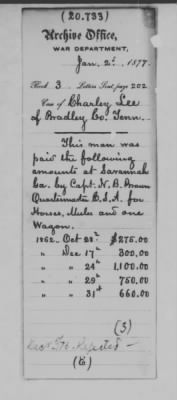 (20.733)
Archive Office,
WAR DEPARTMENT,
Jan. 2d. 1877.
Book 3 Letters Sent, page 202
Case of Charley Lee
of Bradley Co. Tenn.
This man was
paid the following
amounts at Savannah
Ga. by Capt. N. B. Brown
Quartermaster C.S.A. for
Horses, Mules and one
Wagon.
1862. Oct 28th $275.00
" Dec 17th 300.00
" " 24th 1,100.00
" " 29th 750.00
" " 31st 660.00
(5)
Reported —
(6)